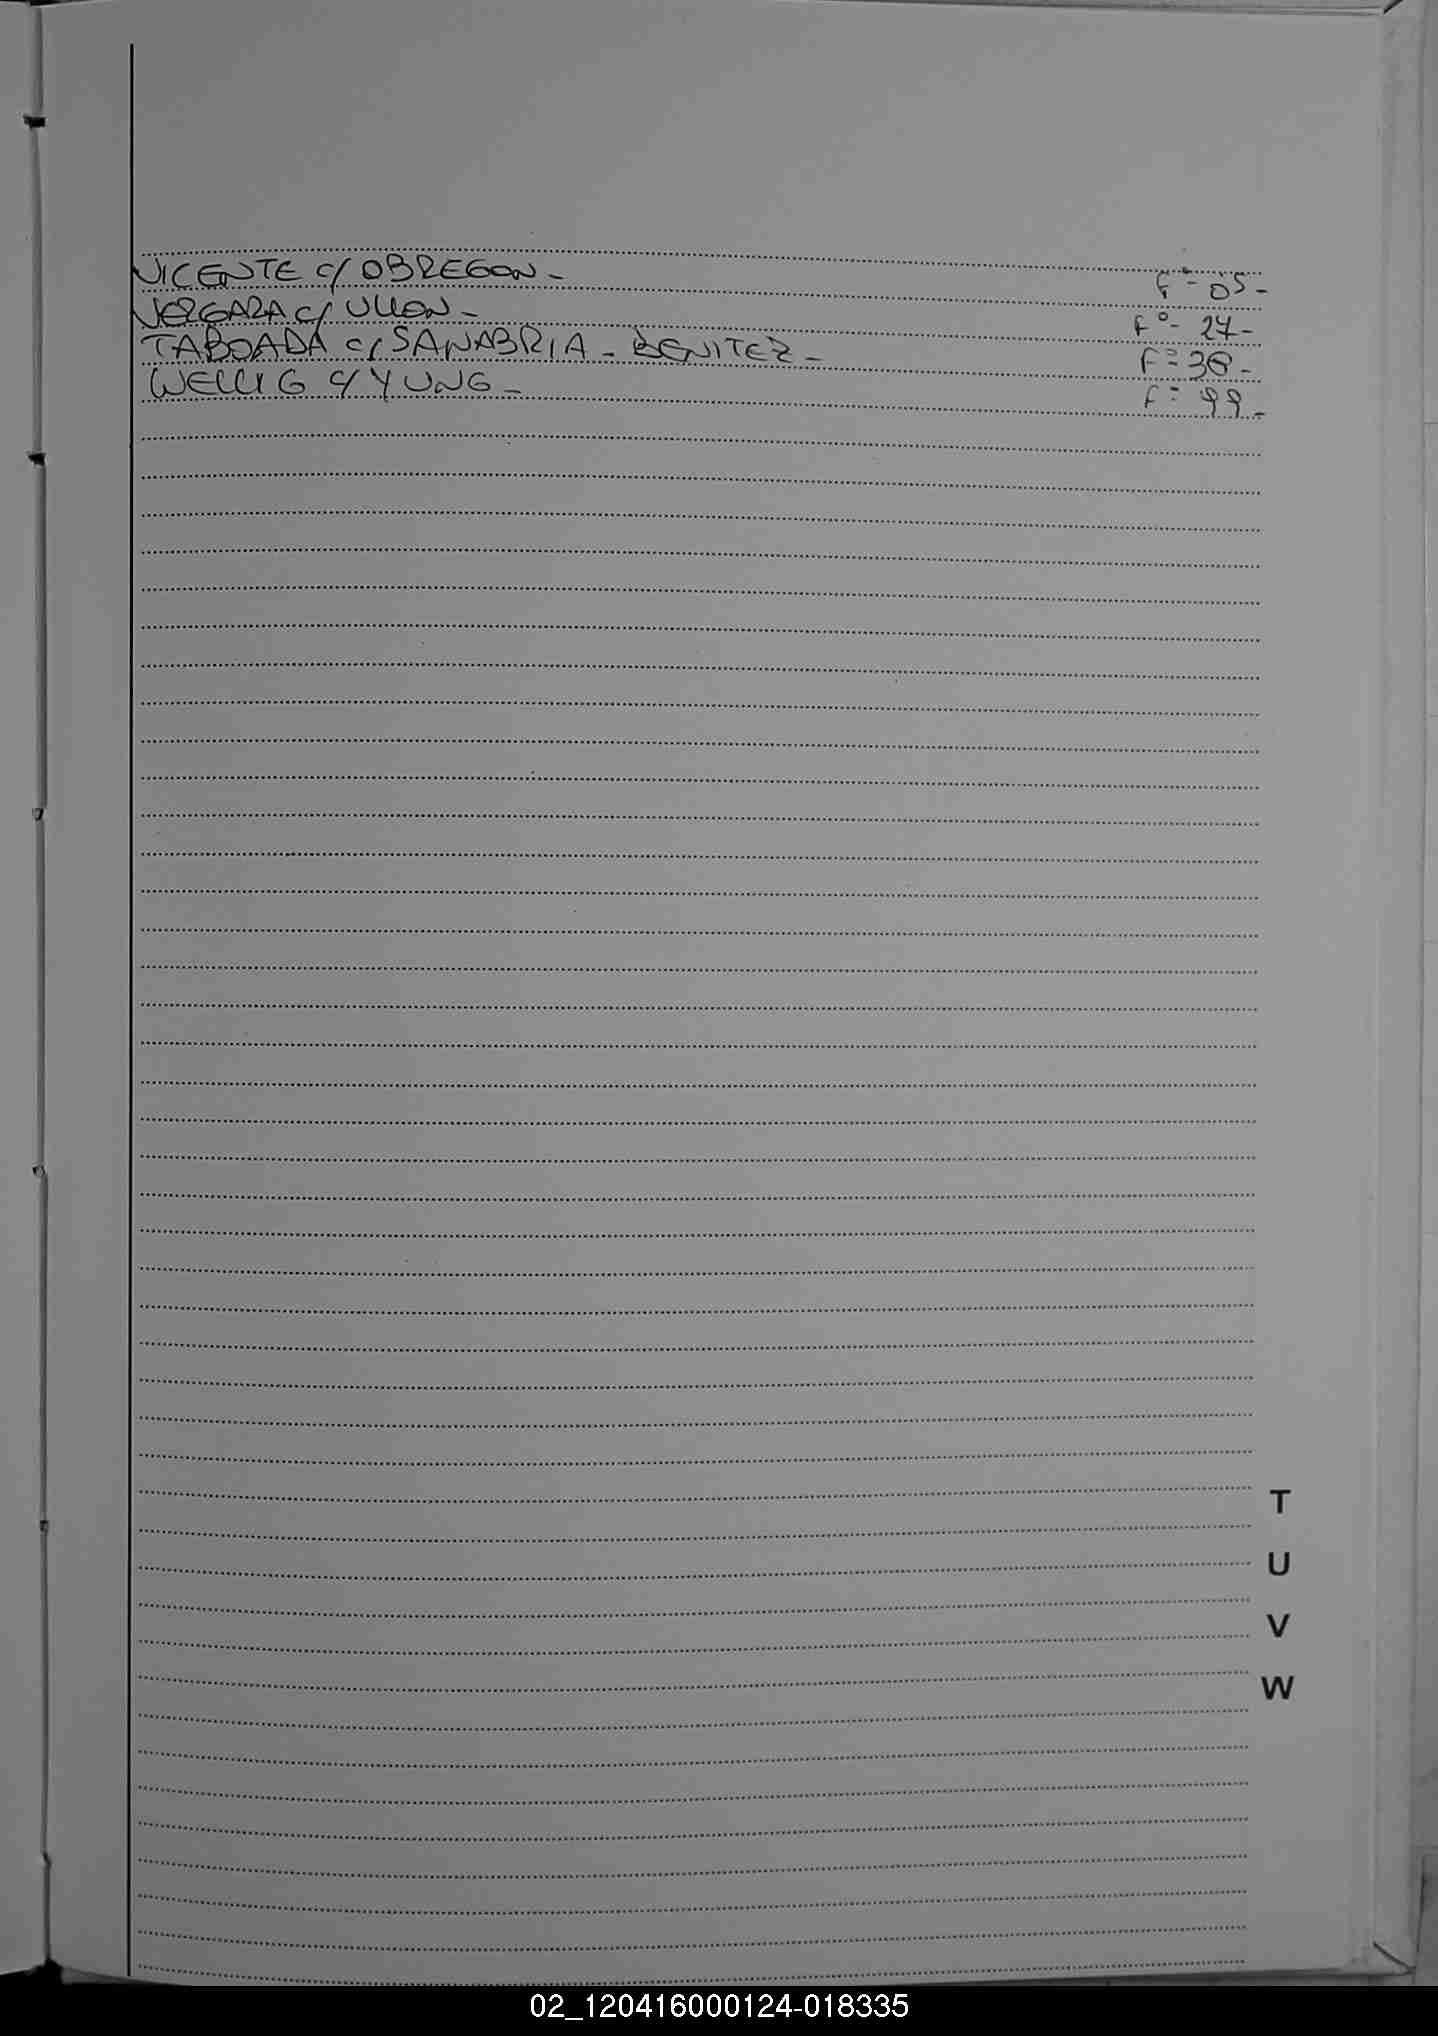 VICENTE c/ OBREGON -
F° - 05 -
VERGARA c/ ULLON -
F° - 27 -
TABOADA c/ SANABRIA - BENITEZ -
F° 38 -
WELLIG c/ YUNG -
F° 99 -
T
U
V
W
02_120416000124-018335